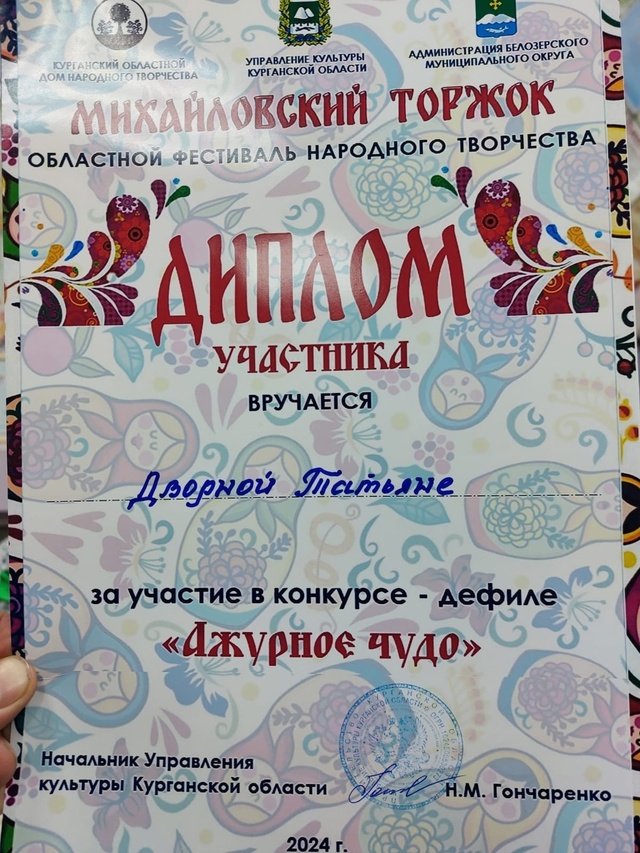 КУРГАНСКИЙ ОБЛАСТНОЙ
ДОМ НАРОДНОГО ТВОРЧЕСТВА
УПРАВЛЕНИЕ КУЛЬТУРЫ
КУРГАНСКОЙ ОБЛАСТИ
АДМИНИСТРАЦИЯ БЕЛОЗЕРСКОГО
МУНИЦИПАЛЬНОГО ОКРУГА
МИХАЙЛОВСКИЙ ТОРЖОК
ОБЛАСТНОЙ ФЕСТИВАЛЬ НАРОДНОГО ТВОРЧЕСТВА
ДИПЛОМ
УЧАСТНИКА
ВРУЧАЕТСЯ
Дворной Татьяне
за участие в конкурсе - дефиле
«Ажурное чудо»
Начальник Управления
культуры Курганской области
Н.М. Гончаренко
2024 г.